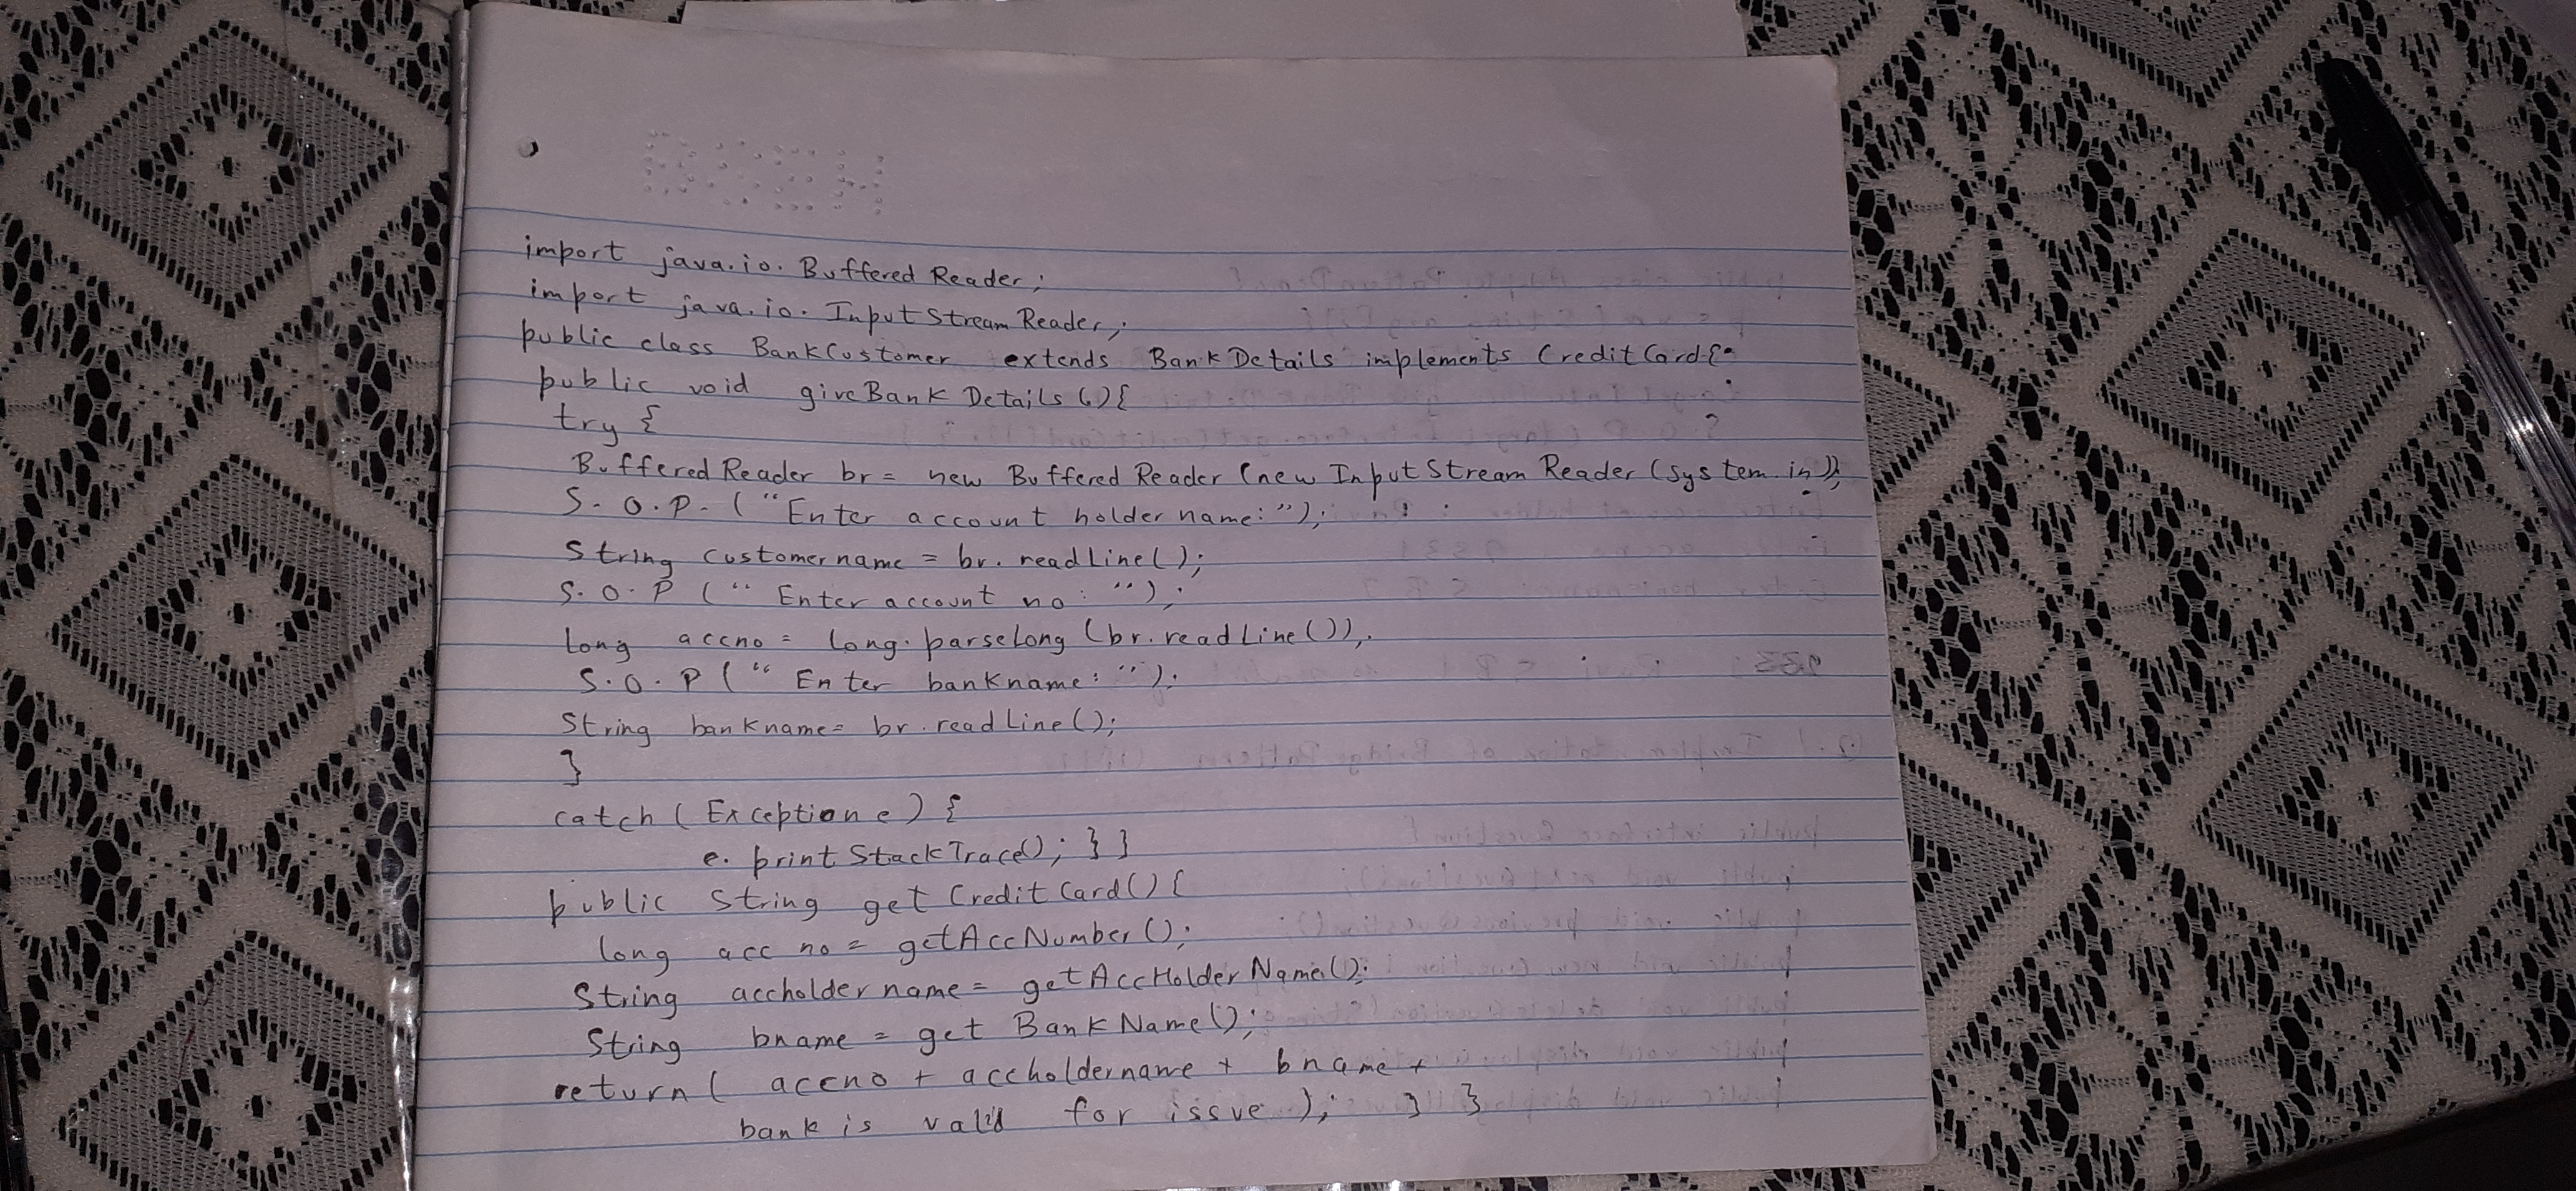 import java.io.BufferedReader;
import java.io.InputStreamReader;
public class BankCustomer extends BankDetails implements CreditCard{
public void giveBankDetails(){
try {
BufferedReader br = new BufferedReader(new InputStreamReader(System.in));
S.O.P. ("Enter account holder name:");
String customername = br.readLine();
S.O.P ("Enter account no: ");
long accno = long.parselong(br.readLine());
S.O.P ("Enter bankname: ");
String bankname= br.readLine();
}
catch (Exception e) {
e.printStackTrace(); } }
public String getCreditCard(){
long acc no = getAccNumber();
String accholdername= getAccHolderName();
String bname = get BankName();
return ( accno + accholdername + bname +
bank is valid for issue ); } }